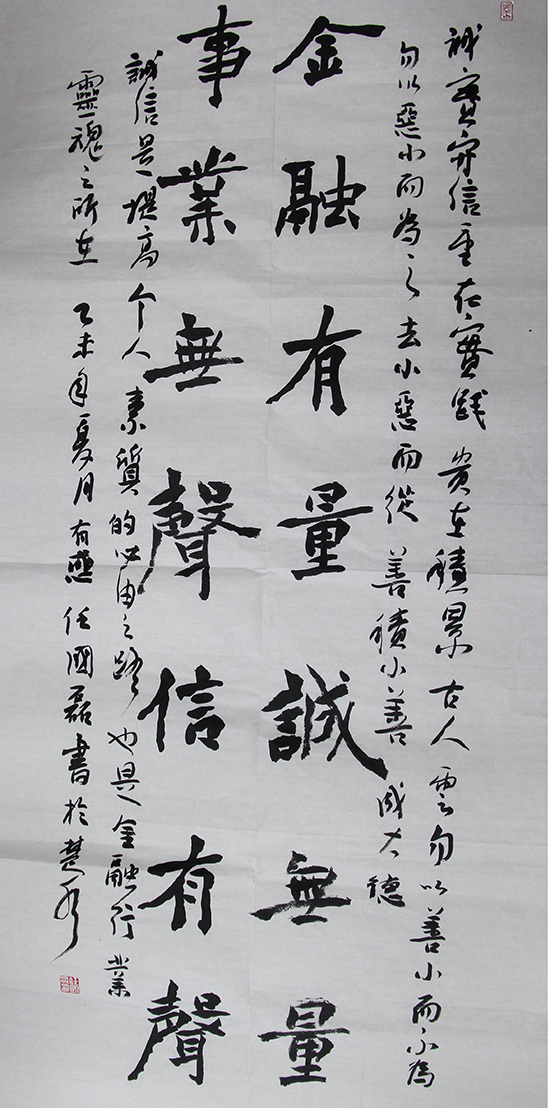 誠實守信重在實践 贵在積累 古人雲勿以善小而不為
勿以惡小而為之去小惡而從善積小善成大德
金融有量誠無量
事業無聲信有聲
誠信是提高个人素質的必由之路也是金融行業
靈魂之所在 乙未年夏月有感任國磊書於楚